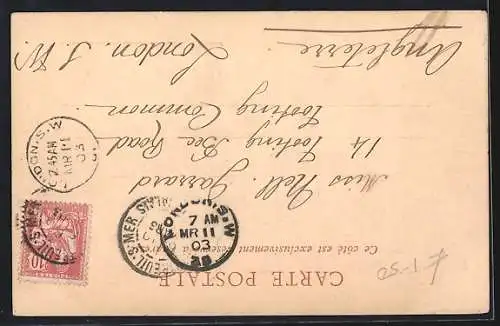 CARTE POSTALE
Ce côté est exclusivement réservé
Miss Nell. Garrard
14 Tooting Bec Road
Tooting Common
London. S. W.
Angleterre
10
LONDON. S. W
7 AM
MR 11
03
LONDON. S. W
7.45 AM
MR 11
03
MONTREUIL-S-MER
7-1.50